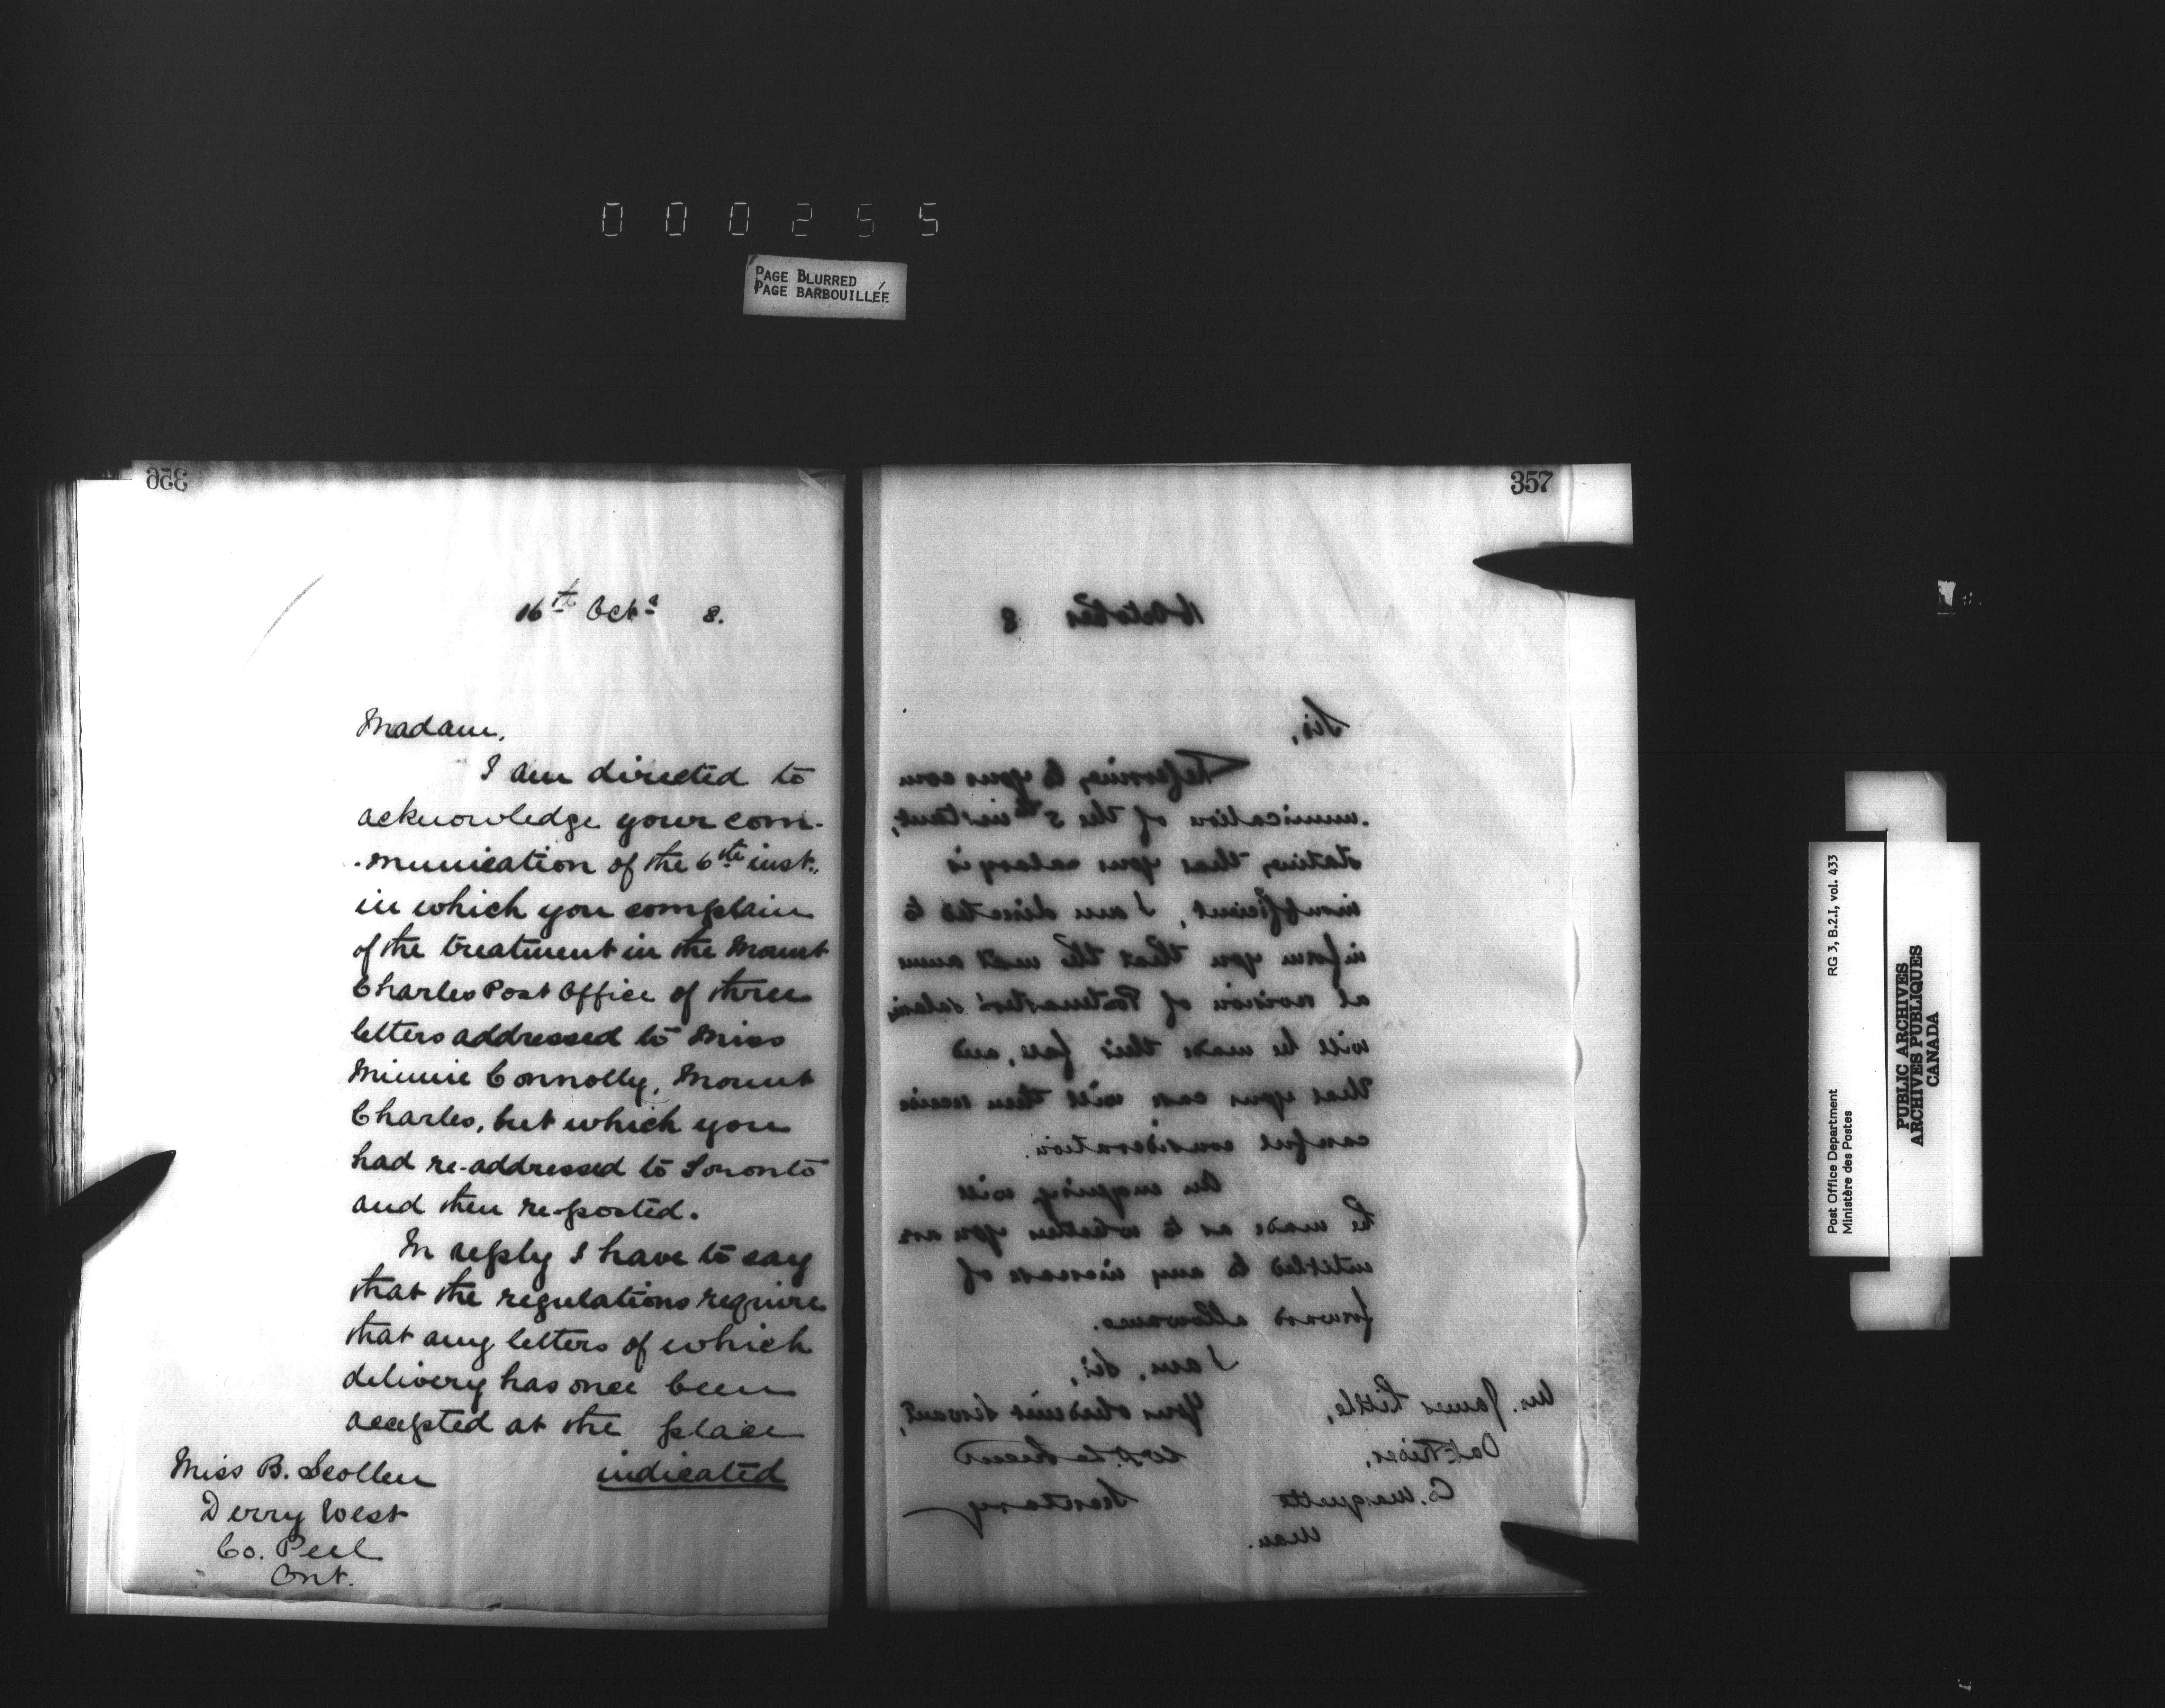 000255
PAGE BLURRED
PAGE BARBOUILLÉE
356
16th Octr 8.
Madam,
I am directed to
acknowledge your com-
-munication of the 6th inst.,
in which you complain
of the treatment in the Mount
Charles Post Office of three
letters addressed to Miss
Minnie Connolly, Mount
Charles, but which you
had re-addressed to Toronto
and then re-posted.
In reply I have to say
that the regulations require
that any letters of which
delivery has once been
accepted at the place
indicated
Miss B. Scollen
Derry West
Co. Peel
Ont.
357
16 October 8
Sir,
Referring to your com
-munication of the 5th instant,
stating that your salary is
insufficient, I am directed to
inform you that the next annu
al revision of Postmasters' salaries
will be made this fall, and
that your case will then receive
careful consideration.
An enquiry will
be made as to whether you are
entitled to any increase of
forward allowance.
I am, Sir,
Your obedient Servant,
Secretary
Mr. James Little,
Oak River,
Co. Marquette
Man.
Post Office Department
Ministère des Postes
RG 3, B.2.I, vol. 433
PUBLIC ARCHIVES
ARCHIVES PUBLIQUES
CANADA